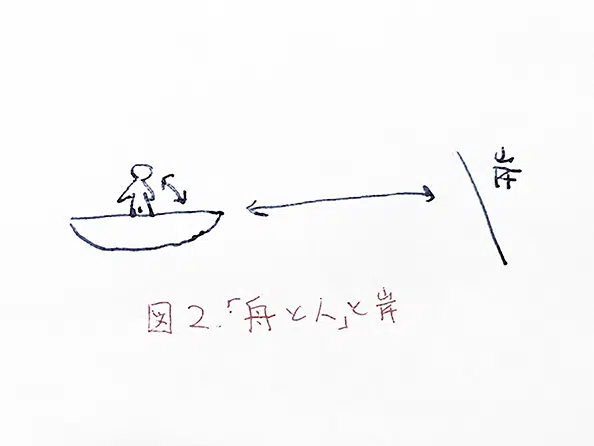 岸
図2.「舟と人」と岸